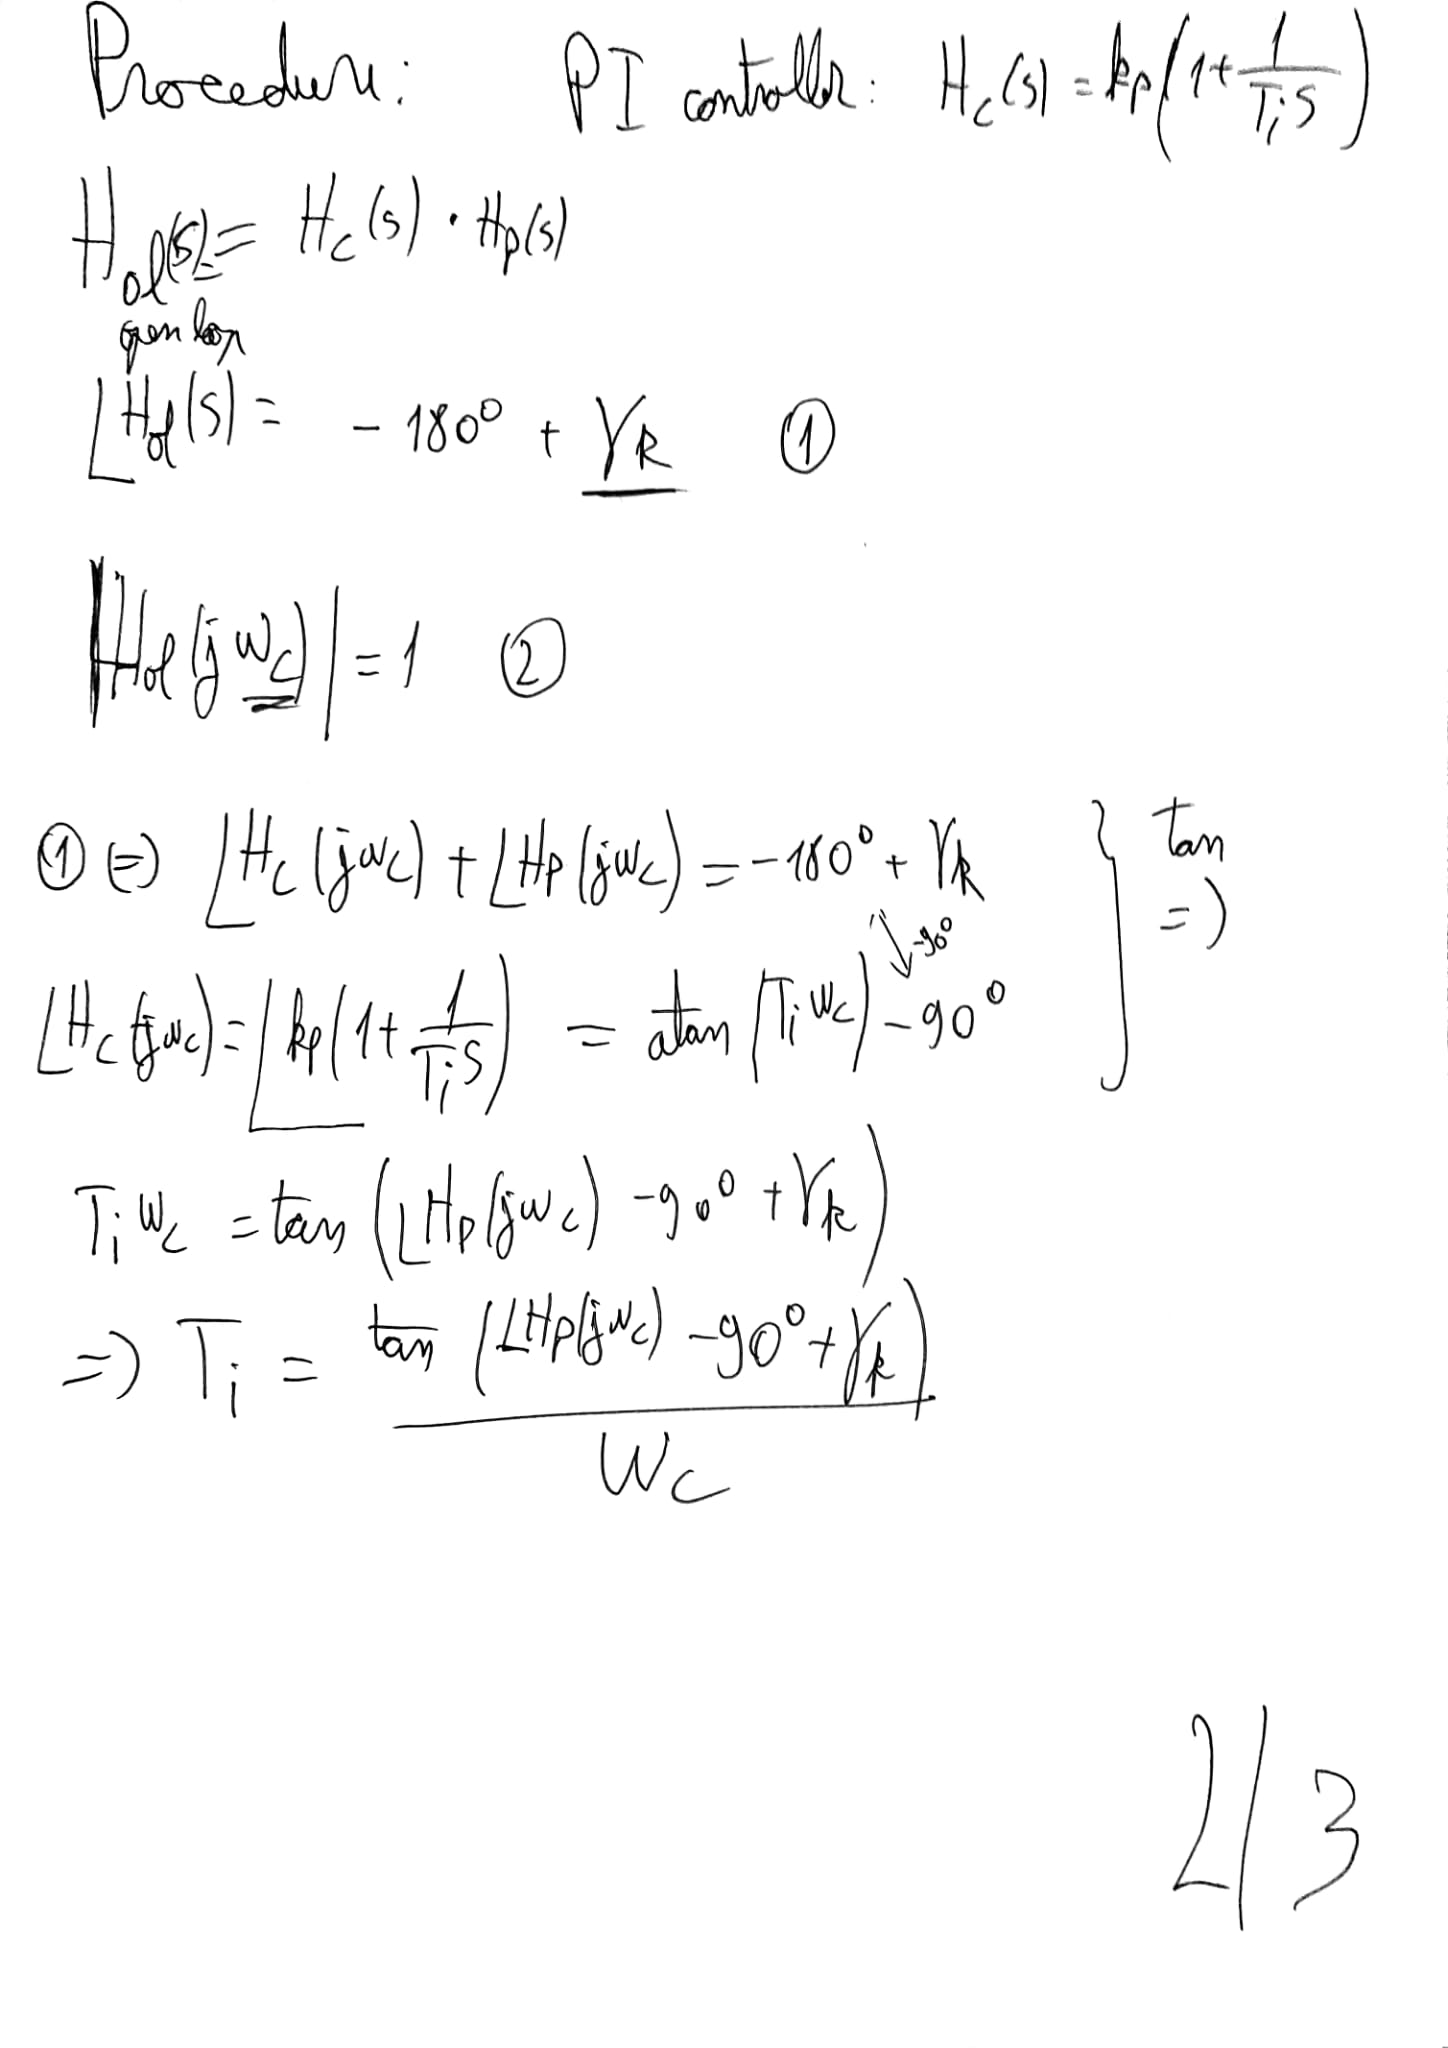 Procedure: PI controller: Hc(s) = kp(1+1/(Tis))
Hol(s) = Hc(s) · Hp(s)
open loop
∠Hol(s) = -180° + γk ①
|Hol(jωc)| = 1 ②
① ⇔ ∠Hc(jωc) + ∠Hp(jωc) = -180° + γk } tan
↓ -90° =>
∠Hc(jωc) = ∠kp(1+1/(Tis)) = atan(Tiωc) - 90°
Tiωc = tan(∠Hp(jωc) -90° + γk)
=> Ti = tan(∠Hp(jωc) -90° + γk)
ωc
2/3